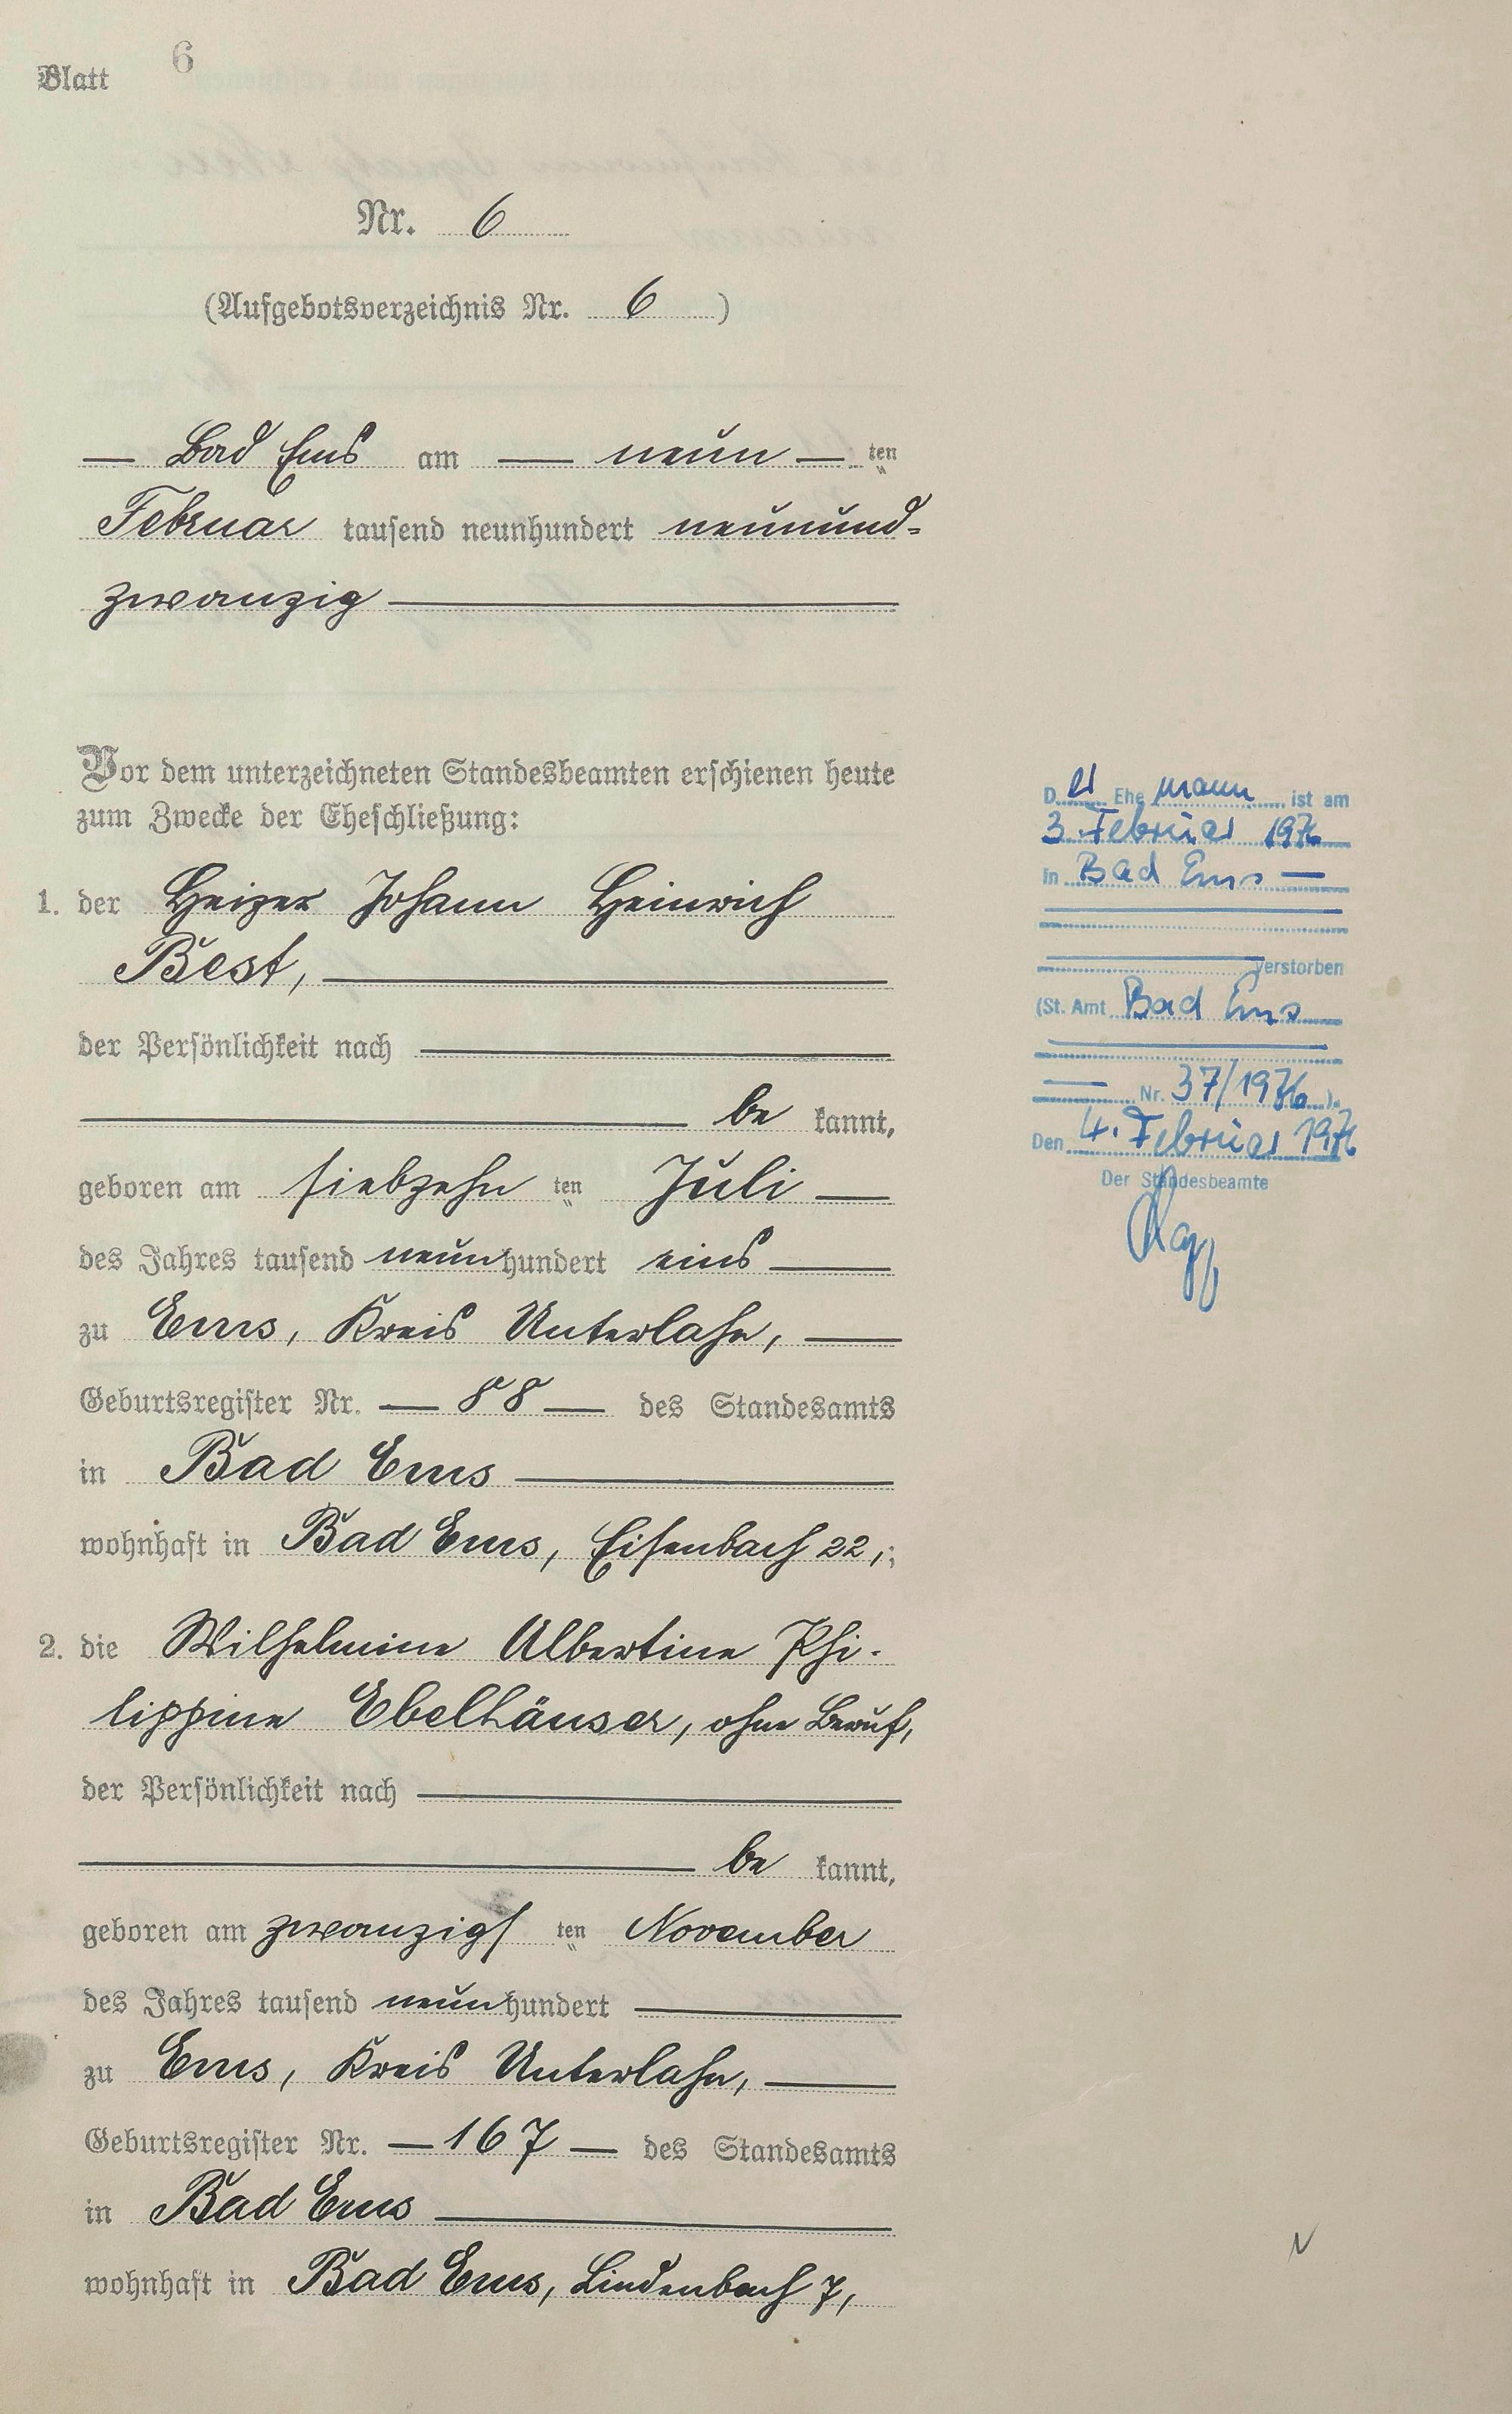 Blatt 6
Nr. 6
(Aufgebotsverzeichnis Nr. 6)
Bad Ems am neun ten
Februar tausend neunhundert neunund-
zwanzig
Vor dem unterzeichneten Standesbeamten erschienen heute
zum Zwecke der Eheschließung:
1. der Heizer Johann Heinrich
Best,
der Persönlichkeit nach
be kannt,
geboren am siebzehn ten Juli
des Jahres tausend neun hundert eins
zu Ems, Kreis Unterlahn,
Geburtsregister Nr. 88 des Standesamts
in Bad Ems
wohnhaft in Bad Ems, Eisenbach 22,;
2. die Wilhelmine Albertine Phi-
lippine Ebelhäuser, ohne Beruf,
der Persönlichkeit nach
be kannt,
geboren am zwanzigs ten November
des Jahres tausend neun hundert
zu Ems, Kreis Unterlahn,
Geburtsregister Nr. 167 des Standesamts
in Bad Ems
wohnhaft in Bad Ems, Lindenbach 7,
D er Ehe mann ist am
3. Februar 1976
in Bad Ems
verstorben
(St. Amt Bad Ems
Nr. 37/1976).
Den 4. Februar 1976
Der Standesbeamte